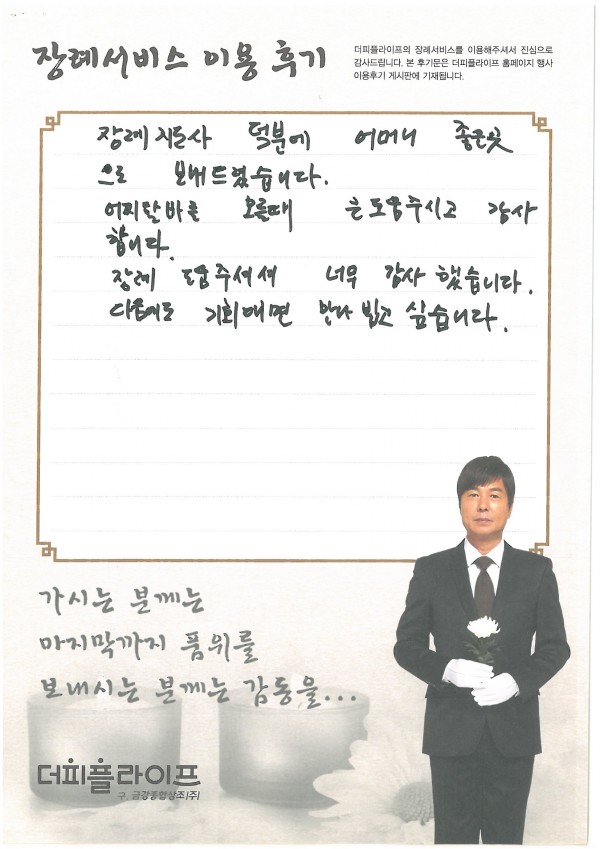 장례서비스 이용 후기
더피플라이프의 장례서비스를 이용해주셔서 진심으로
감사드립니다. 본 후기문은 더피플라이프 홈페이지 행사
이용후기 게시판에 기재됩니다.
장례지도사 덕분에 어머니 좋은곳
으로 보내드렸습니다.
오를때 큰도움주시고 감사
합니다.
장례 도움주셔서 너무 감사했습니다.
다음에도 기회대면 만나 뵙고 싶습니다.
가시는 분께는
마지막까지 품위를
보내시는 분께는 감동을...
더피플라이프
구. 금강종합상조(주)